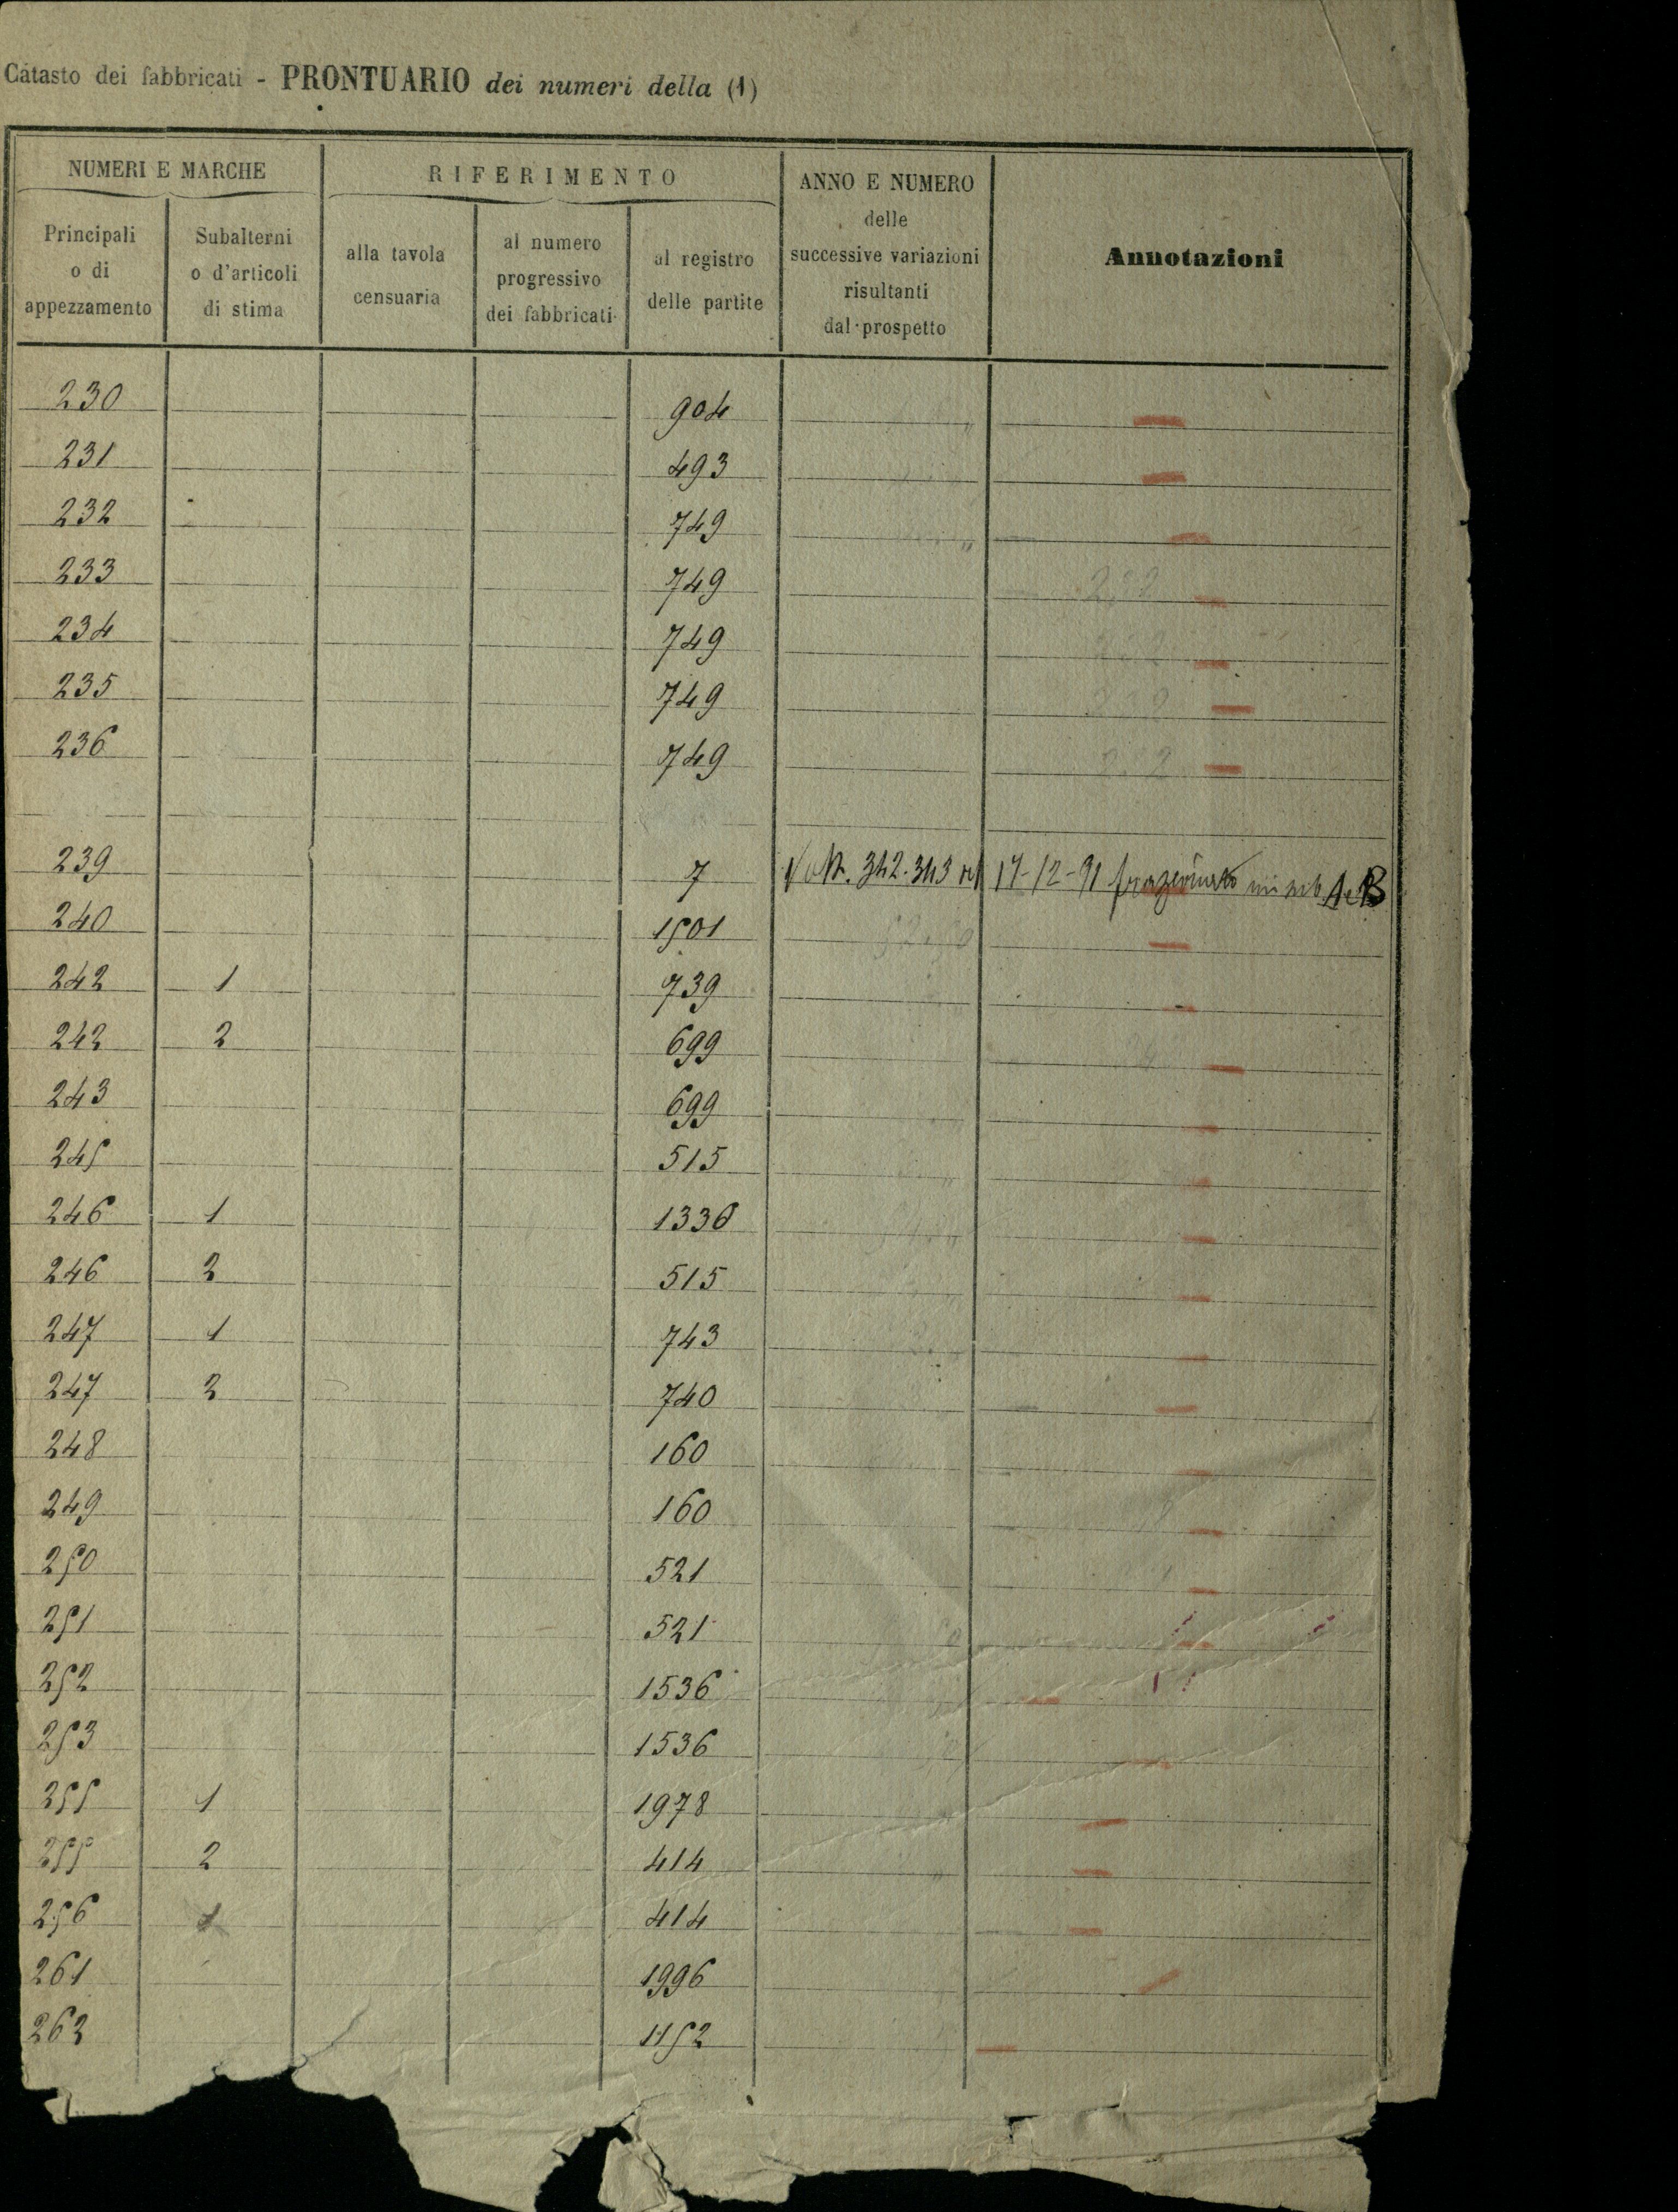 Catasto dei fabbricati - PRONTUARIO dei numeri della (1)
NUMERI E MARCHE
RIFERIMENTO
ANNO E NUMERO
delle
successive variazioni
risultanti
dal prospetto
Annotazioni
Principali
o di
appezzamento
Subalterni
o d'articoli
di stima
alla tavola
censuaria
al numero
progressivo
dei fabbricati
al registro
delle partite
230 904
231 493
232 749
233 749
234 749
235 749
236 749
239 7 342.343 17-12-91 A e B
240 1501
242 1 739
242 2 699
243 699
245 515
246 1 1336
246 2 515
247 1 743
247 2 740
248 160
249 160
250 521
251 521
252 1536
253 1536
255 1 1978
255 2 414
256 1 414
261 1996
262 1152